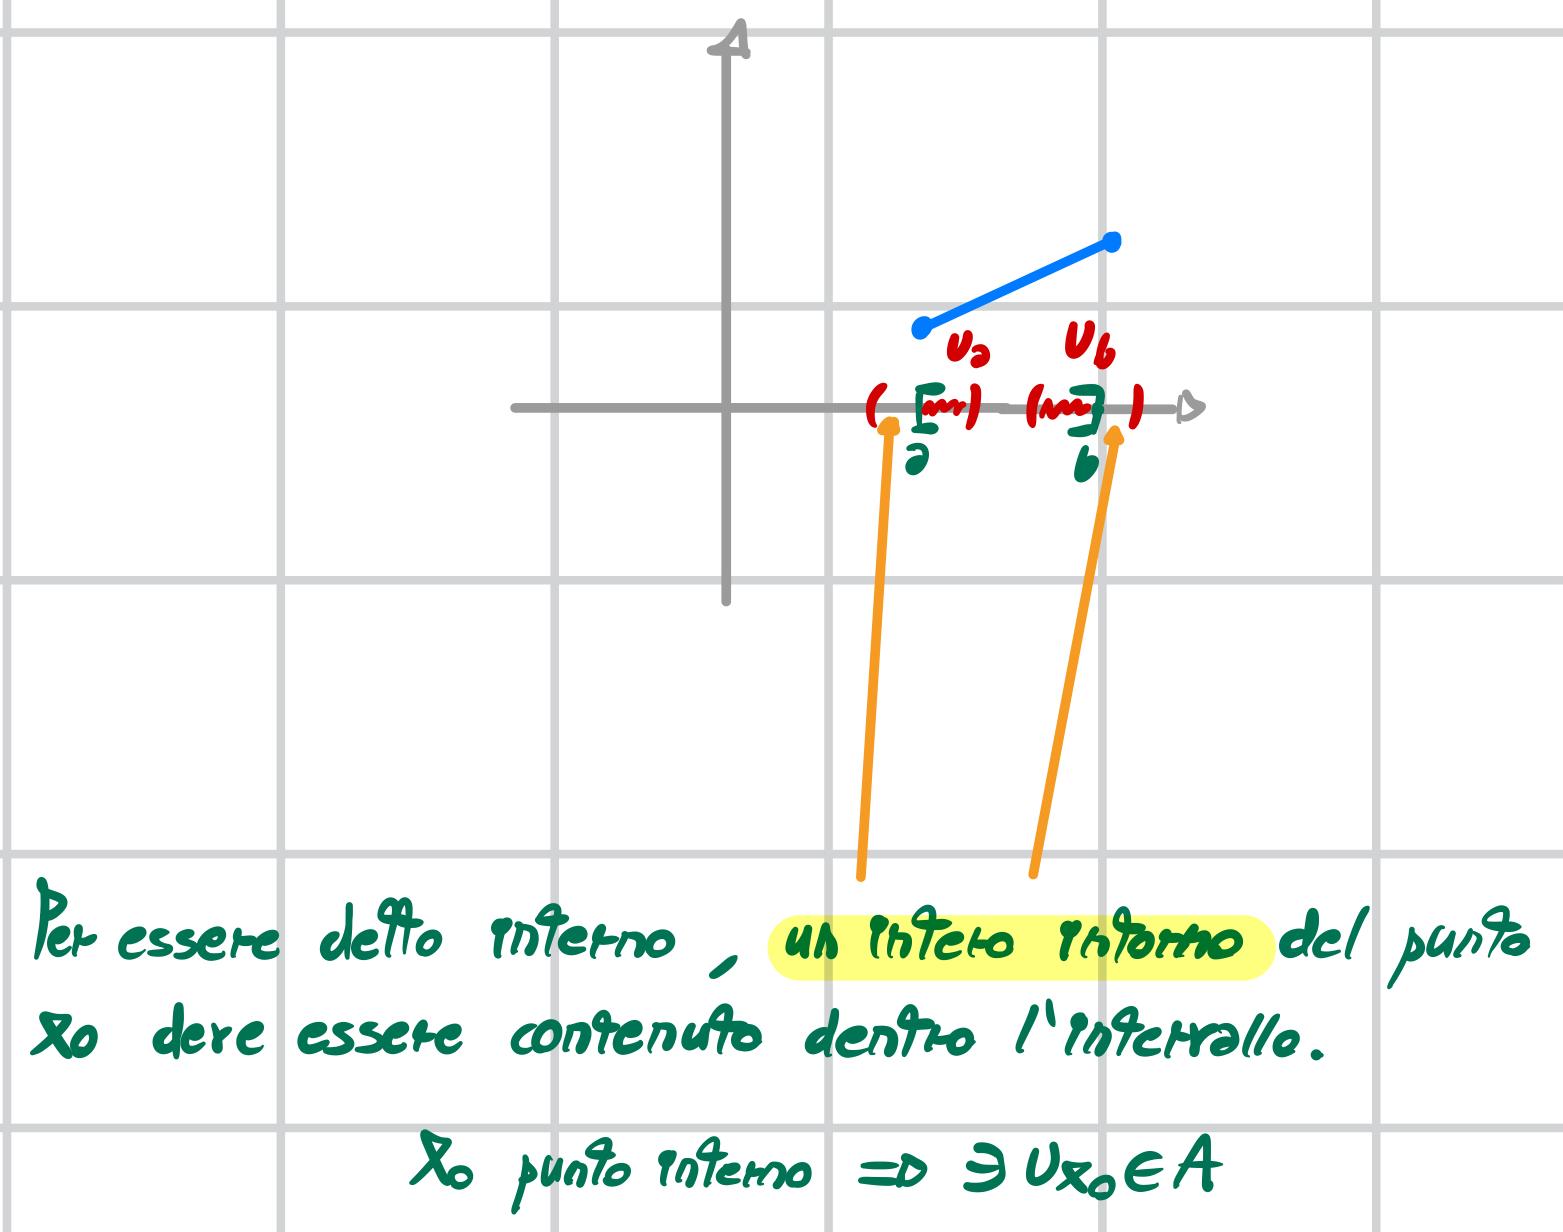 Ua Ub
( [ ) ( ] )
a b
Per essere detto interno, un intero intorno del punto
x₀ deve essere contenuto dentro l'intervallo.
X₀ punto interno => ∃ Ux₀ ∈ A